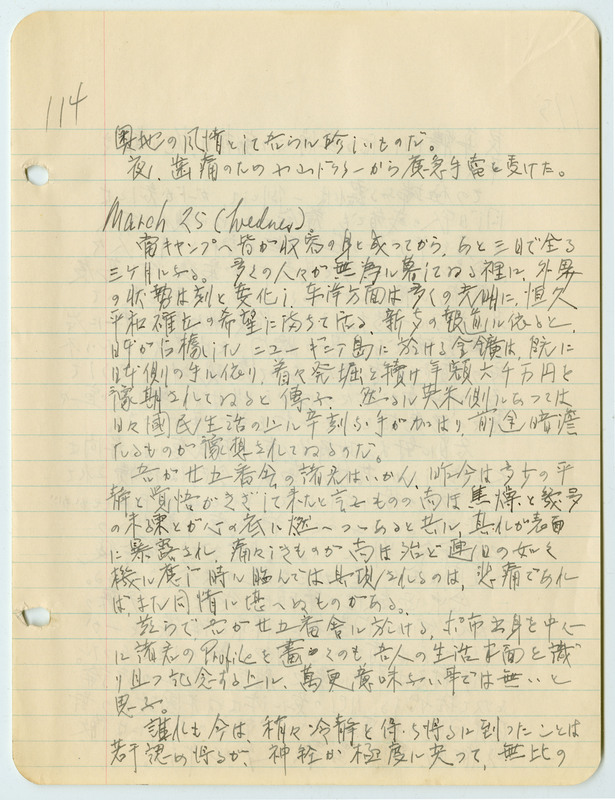 114
奥地の風情として吾らに珍しいものだ。
夜、歯痛のため から應急手當を受けた。
March 25 (Wednes).
當キャンプへ皆が収容の身と成ってから、あと三日で全る
三ケ月になる。多くの人々が無為に暮してゐる裡に、外界
の状勢は刻々変化し、東洋方面は多くの光明に、恒久
平和確立の希望に満ちて居る。新聞の報道に依ると、
日軍が占據した ニューギニア島に於ける金鑛は、既に
日本側の手に依り、着々発掘を続け年額六千万円を
豫期されてゐると傳ふ。然るに英米側にあっては
日々國民生活の上に辛刻な手が加はり、前途暗澹
たるものが豫想されてゐるのだ。
吾が廿五番舎の諸兄はいかん、昨今は多少の平
静と覚悟がきざして来たと言ふものの尚ほ焦燥と幾多
の未練とが心の底に燃へつゝあると共に、其れが表面
に暴露され、痛々しきものが尚ほ殆ど連日の如き
機に應じ時に臨んでは具現されるのは、悲痛であれ
ばまた同情に堪へぬものがある。
茲らで吾が廿五番舎に於ける、ホ市出身を中心
に諸君のProfileを畫くのも、吾人の生活面を識
り且つ記念する上に、萬更意味ない事では無いと
思ふ。
誰れも今は、稍々冷静を得らる得るに到ったことは
若干認め得るが、神経が極度に尖って、無比の